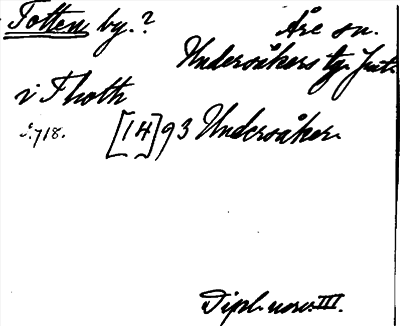 Totten by.? Åre sn.
Undersåkers tg. Jmt.
i Thoth
s. 718. [14]93 Undersåker.
Dipl. norv. III.